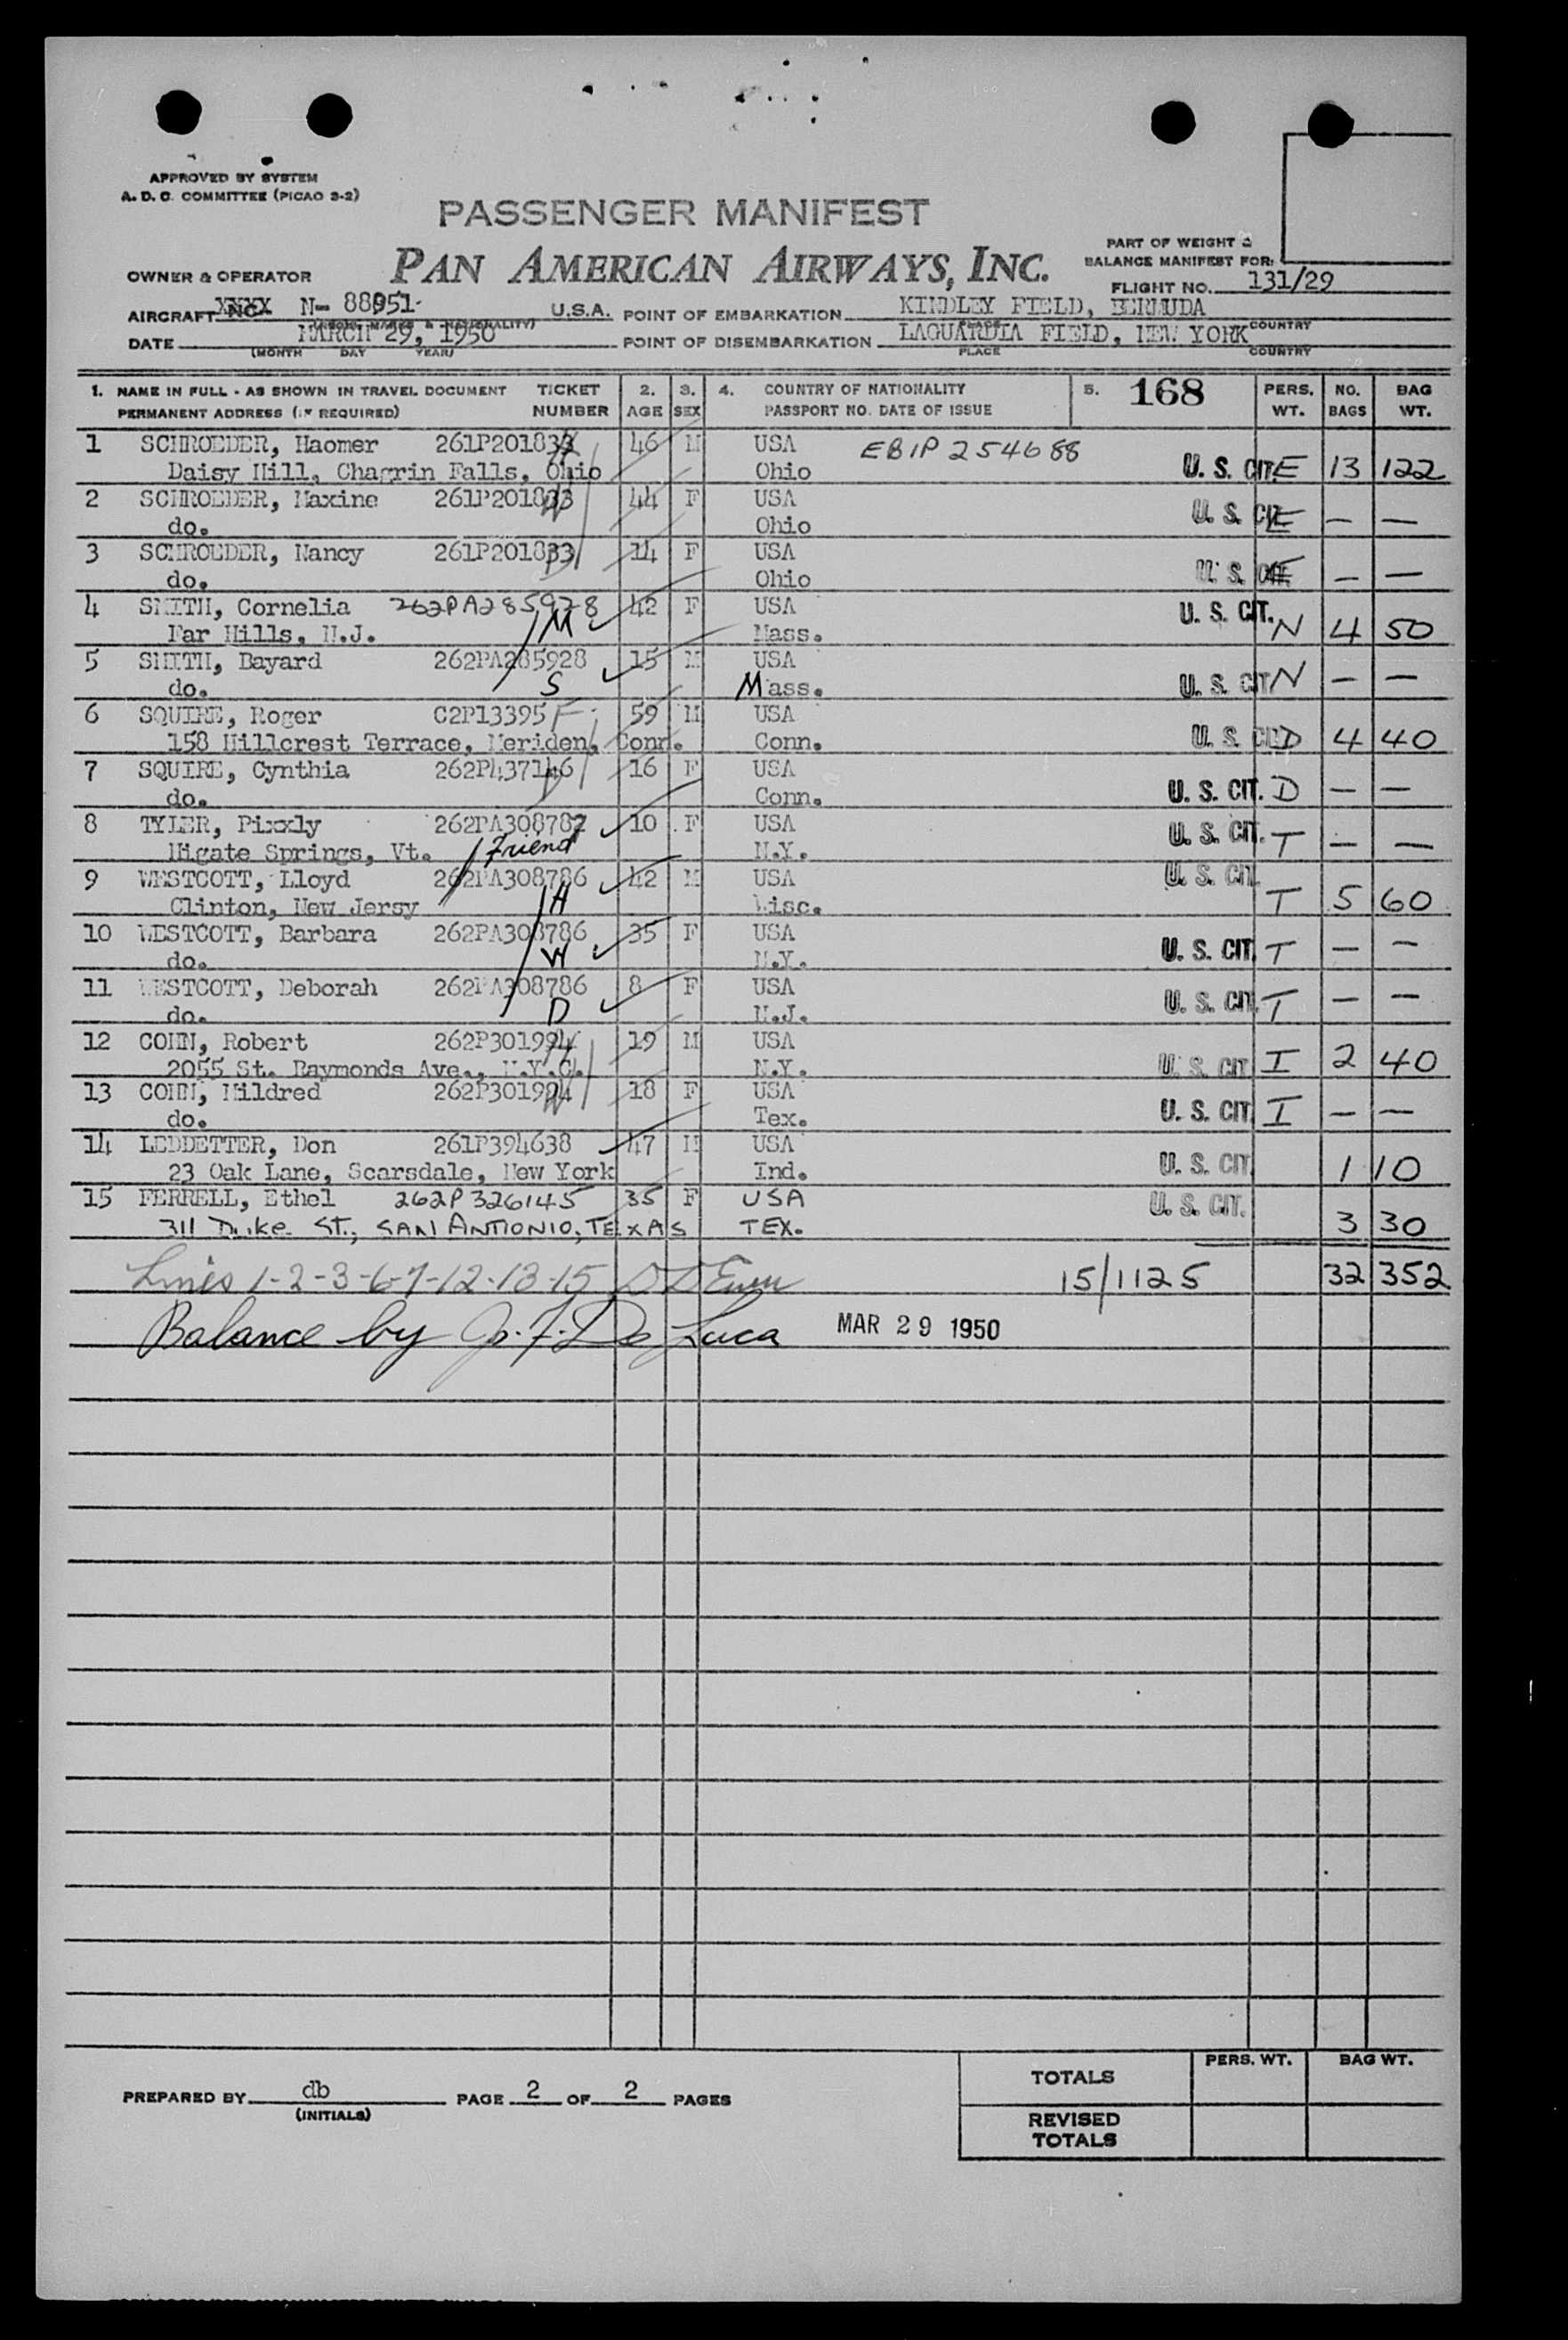 APPROVED BY SYSTEM
A. D. C. COMMITTEE (PICAO 3-2)
PASSENGER MANIFEST
PAN AMERICAN AIRWAYS, INC.
PART OF WEIGHT &
BALANCE MANIFEST FOR:
OWNER & OPERATOR
FLIGHT NO. 131/29
AIRCRAFT XXXX N- 88951 U.S.A. POINT OF EMBARKATION KINDLEY FIELD, BERMUDA
DATE MARCH 29, 1950 POINT OF DISEMBARKATION LAGUARDIA FIELD, NEW YORK
(MONTH DAY YEAR) PLACE COUNTRY
1. NAME IN FULL - AS SHOWN IN TRAVEL DOCUMENT TICKET 2. 3. 4. COUNTRY OF NATIONALITY 5. 168 PERS. NO. BAG
PERMANENT ADDRESS (IF REQUIRED) NUMBER AGE SEX PASSPORT NO. DATE OF ISSUE WT. BAGS WT.
1 SCHROEDER, Haomer 261P201833 H 46 M USA EB1P254688
Daisy Hill, Chagrin Falls, Ohio Ohio U. S. CIT. E 13 122
2 SCHROEDER, Maxine 261P201833 W 44 F USA U. S. CIT. E — —
do. Ohio
3 SCHROEDER, Nancy 261P201833 D 14 F USA
do. Ohio U. S. CIT. E — —
4 SMITH, Cornelia 262PA285928 42 F USA U. S. CIT.
Far Hills, N.J. M Mass. N 4 50
5 SMITH, Bayard 262PA285928 15 M USA
do. S Mass. U. S. CIT. N — —
6 SQUIRE, Roger C2P13395 F 59 M USA
158 Hillcrest Terrace, Meriden, Conn. Conn. U. S. CIT. D 4 40
7 SQUIRE, Cynthia 262P437146 D 16 F USA
do. Conn. U. S. CIT. D — —
8 TYLER, Pixxly 262PA308787 10 F USA U. S. CIT. T — —
Higate Springs, Vt. Friend N.Y.
9 WESTCOTT, Lloyd 262PA308786 42 M USA U. S. CIT.
Clinton, New Jersy H Wisc. T 5 60
10 WESTCOTT, Barbara 262PA308786 35 F USA
do. W N.Y. U. S. CIT. T — —
11 WESTCOTT, Deborah 262PA308786 8 F USA
do. D N.J. U. S. CIT. T — —
12 COHN, Robert 262P301994 H 19 M USA
2055 St. Raymonds Ave., N.Y.C. N.Y. U. S. CIT. I 2 40
13 COHN, Mildred 262P301994 W 18 F USA
do. Tex. U. S. CIT. I — —
14 LEDDETTER, Don 261P394638 47 M USA
23 Oak Lane, Scarsdale, New York Ind. U. S. CIT. 1 10
15 FERRELL, Ethel 262P326145 35 F USA U. S. CIT.
311 Duke St., SAN ANTONIO, TEXAS TEX. 3 30
Lines 1-2-3-6-7-12-13-15 15/1125 32 352
Balance by J. F. De Luca MAR 29 1950
PREPARED BY db PAGE 2 OF 2 PAGES
(INITIALS)
PERS. WT. BAG WT.
TOTALS
REVISED
TOTALS